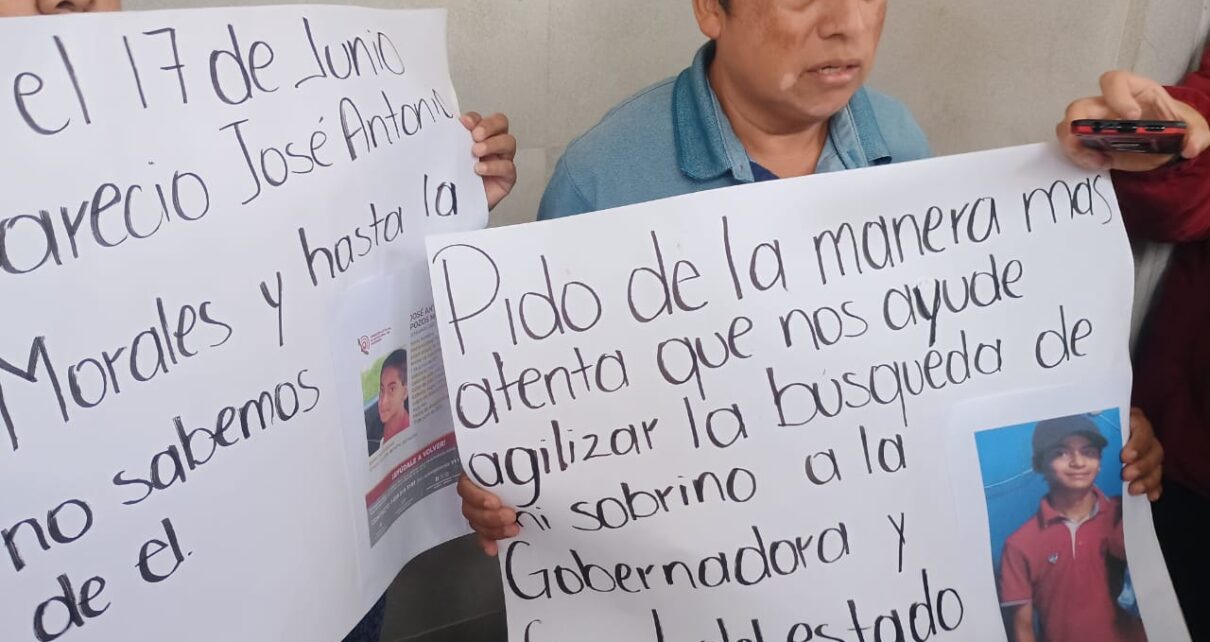 el 17 de Junio
arecio José Antonio
Morales y hasta la
no sabemos
de el.
JOSÉ ANT
POZOS M
¡AYÚDALE A VOLVER!
Pido de la manera mas
atenta que nos ayude
agilizar la búsquéda de
mi sobrino a la
Gobernadora y
estado